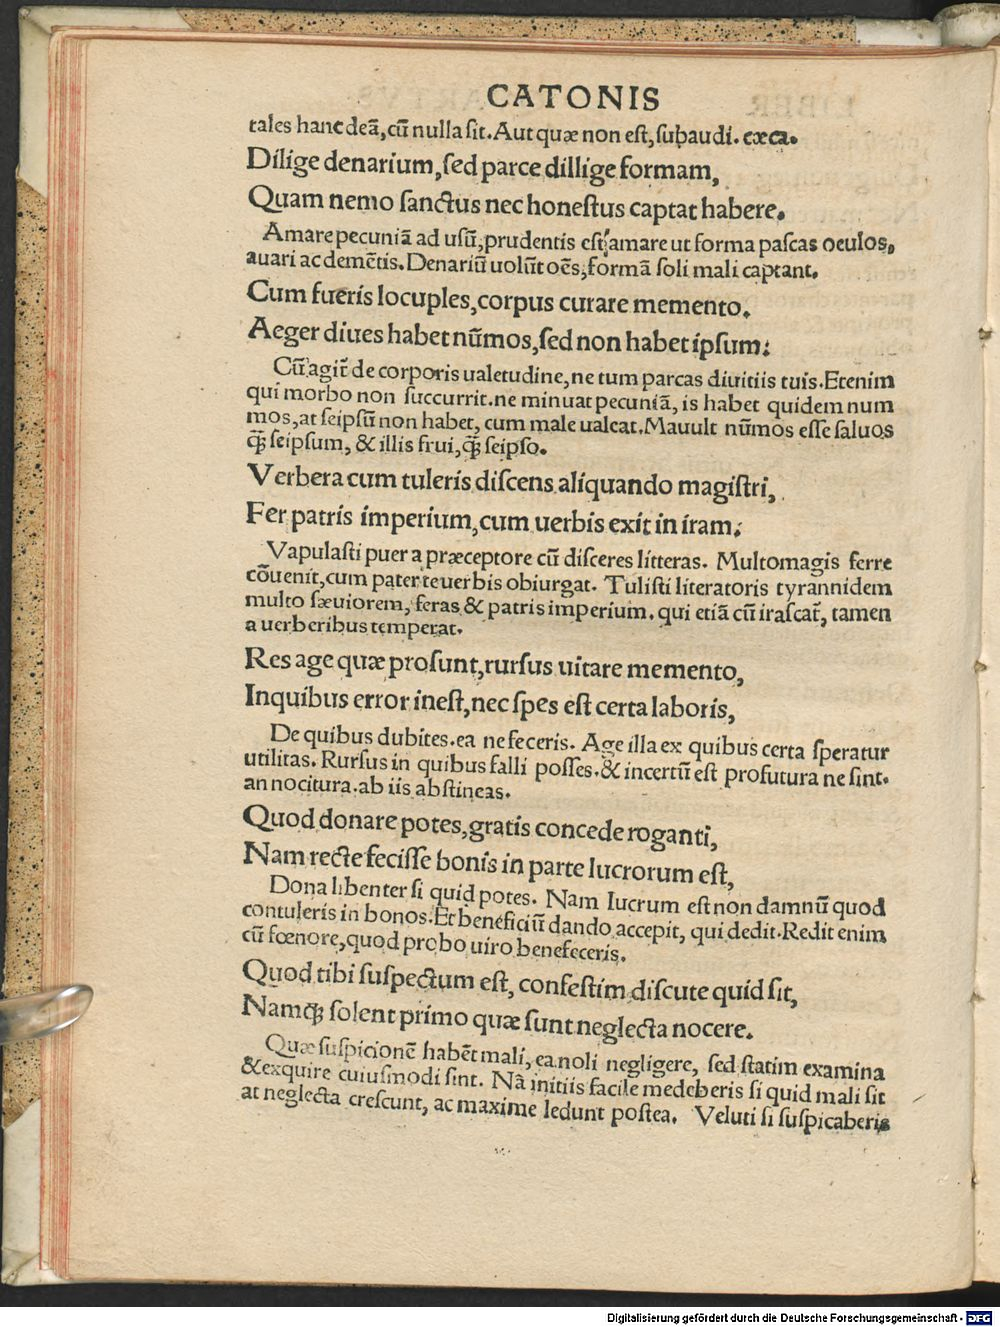 CATONIS
tales hanc deā, cū nulla sit. Aut quæ non est, subaudi. exca.
Dilige denarium, sed parce dillige formam,
Quam nemo sanctus nec honestus captat habere.
Amare pecuniā ad usū, prudentis est, amare ut forma pascas oculos,
auari ac demētis. Denariū uolūt oēs, formā soli mali captant.
Cum fueris locuples, corpus curare memento.
Aeger diues habet nūmos, sed non habet ipsum:
Cū agit̄ de corporis ualetudine, ne tum parcas diuitiis tuis. Etenim
qui morbo non succurrit. ne minuat pecuniā, is habet quidem num
mos, at seipsū non habet, cum male ualeat. Mauult nūmos esse saluos
q̄ꝫ seipsum, & illis frui, q̄ꝫ seipso.
Verbera cum tuleris discens aliquando magistri,
Fer patris imperium, cum uerbis exit in iram:
Vapulasti puer a præceptore cū disceres litteras. Multomagis ferre
cōuenit, cum pater te uerbis obiurgat. Tulisti literatoris tyrannidem
multo sæuiorem, feras & patris imperium. qui etiā cū irascat̄, tamen
a uerberibus temperat.
Res age quæ prosunt, rursus uitare memento,
In quibus error inest, nec spes est certa laboris,
De quibus dubites. ea ne feceris. Age illa ex quibus certa speratur
utilitas. Rursus in quibus falli posses. & incertū est profutura ne sint.
an nocitura. ab iis abstineas.
Quod donare potes, gratis concede roganti,
Nam recte fecisse bonis in parte lucrorum est,
Dona libenter si quid potes. Nam lucrum est non damnū quod
contuleris in bonos. Et beneficiū dando accepit, qui dedit. Redit enim
cū fœnore, quod probo uiro benefeceris.
Quod tibi suspectum est, confestim discute quid sit,
Namqꝫ solent primo quæ sunt neglecta nocere.
Quæ suspicionē habēt mali, ea noli negligere, sed statim examina
& exquire cuiusmodi sint. Nā initiis facile medeberis si quid mali sit
at neglecta crescunt, ac maxime ledunt postea. Veluti si suspicaberis
Digitalisierung gefördert durch die Deutsche Forschungsgemeinschaft - DFG